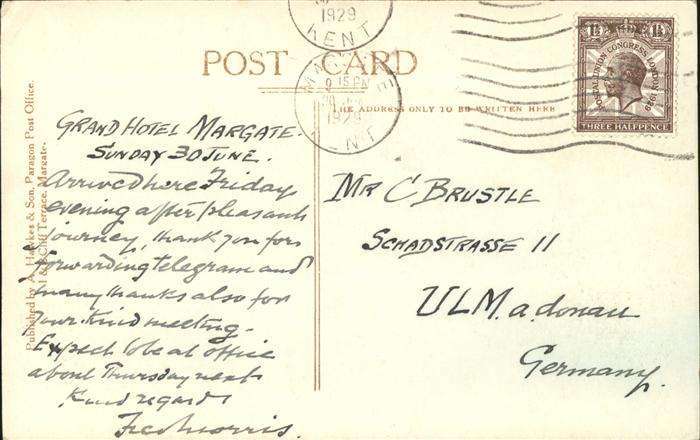 1929
KENT
POST CARD
MARGATE
9 15 PM
1929
KENT
THE ADDRESS ONLY TO BE WRITTEN HERE
1½ 1½
POSTAL UNION CONGRESS LONDON 1929
THREE HALFPENCE
Published by A. Hawkes & Son, Paragon Post Office,
Cliff Terrace, Margate.
GRAND HOTEL MARGATE.
SUNDAY 30 JUNE.
Arrived here Friday
evening after pleasant
journey, thank you for
forwarding telegram and
many thanks also for
your kind meeting.
Expect to be at office
about Thursday next
Kind regards
Fred Morris.
MR C BRUSTLE
SCHADSTRASSE 11
ULM. a. donau
Germany.